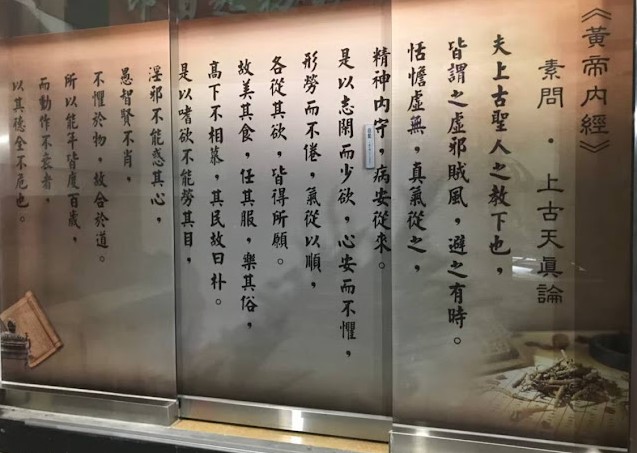 《黃帝內經》
素問・上古天真論
夫上古聖人之教下也，
皆謂之虛邪賊風，避之有時。
恬憺虛無，真氣從之，
精神內守，病安從來。
是以志閑而少欲，心安而不懼，
形勞而不倦，氣從以順，
各從其欲，皆得所願。
故美其食，任其服，樂其俗，
高下不相慕，其民故曰朴。
是以嗜欲不能勞其目，
淫邪不能惑其心，
愚智賢不肖，
不懼於物，故合於道。
所以能年皆度百歲，
而動作不衰者，
以其德全不危也。